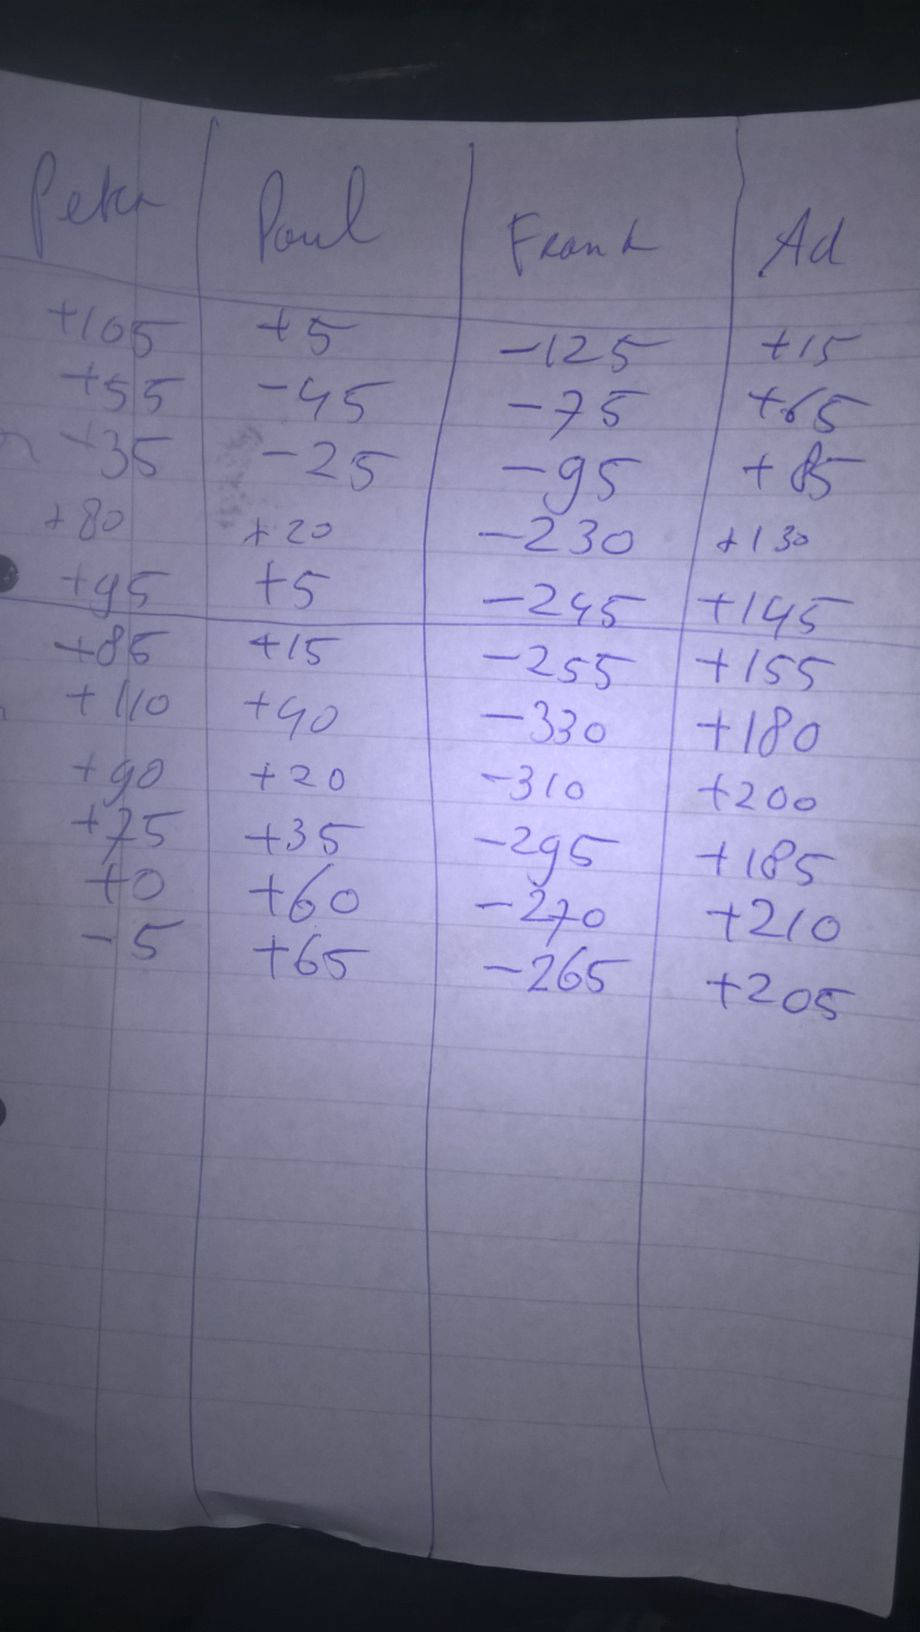 Peter Paul Frank Ad
+105 +5 -125 +15
+55 -45 -75 +65
+35 -25 -95 +85
+80 +20 -230 +130
+95 +5 -245 +145
+85 +15 -255 +155
+110 +40 -330 +180
+90 +20 -310 +200
+75 +35 -295 +185
+0 +60 -270 +210
-5 +65 -265 +205